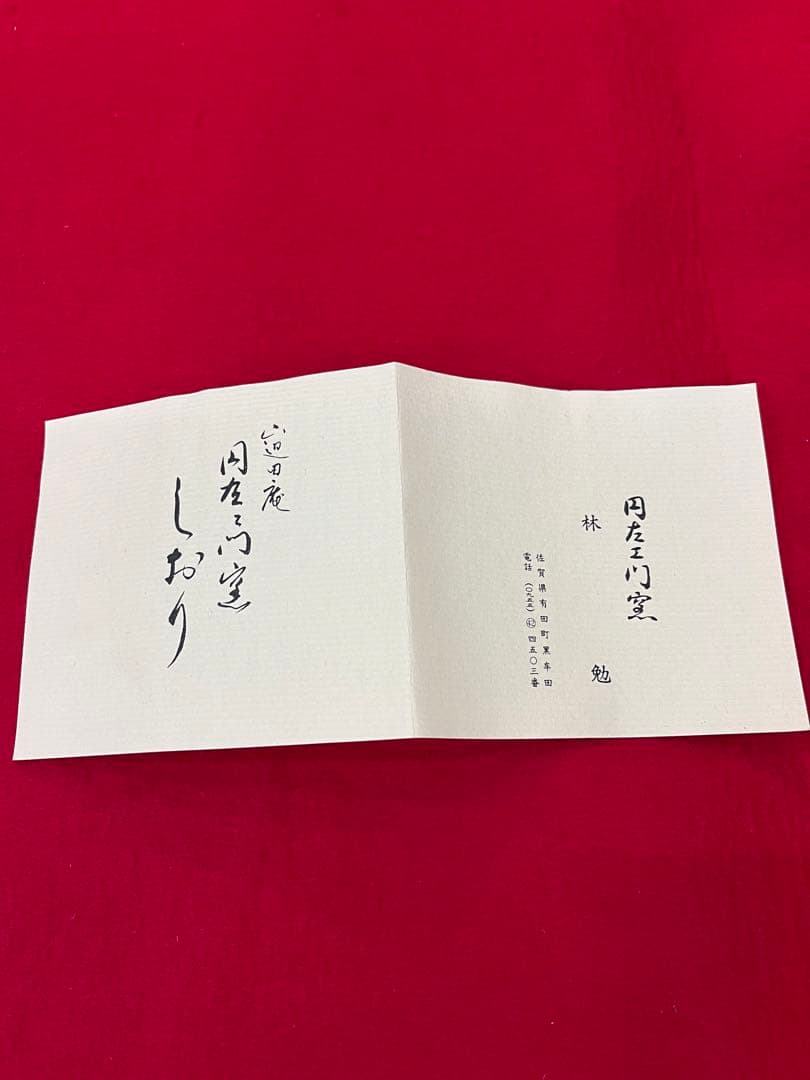 円左エ門窯
林 勉
佐賀県有田町黒牟田
電話(〇九五五)㊷四五〇三番
迫田庵
円左エ門窯
しおり